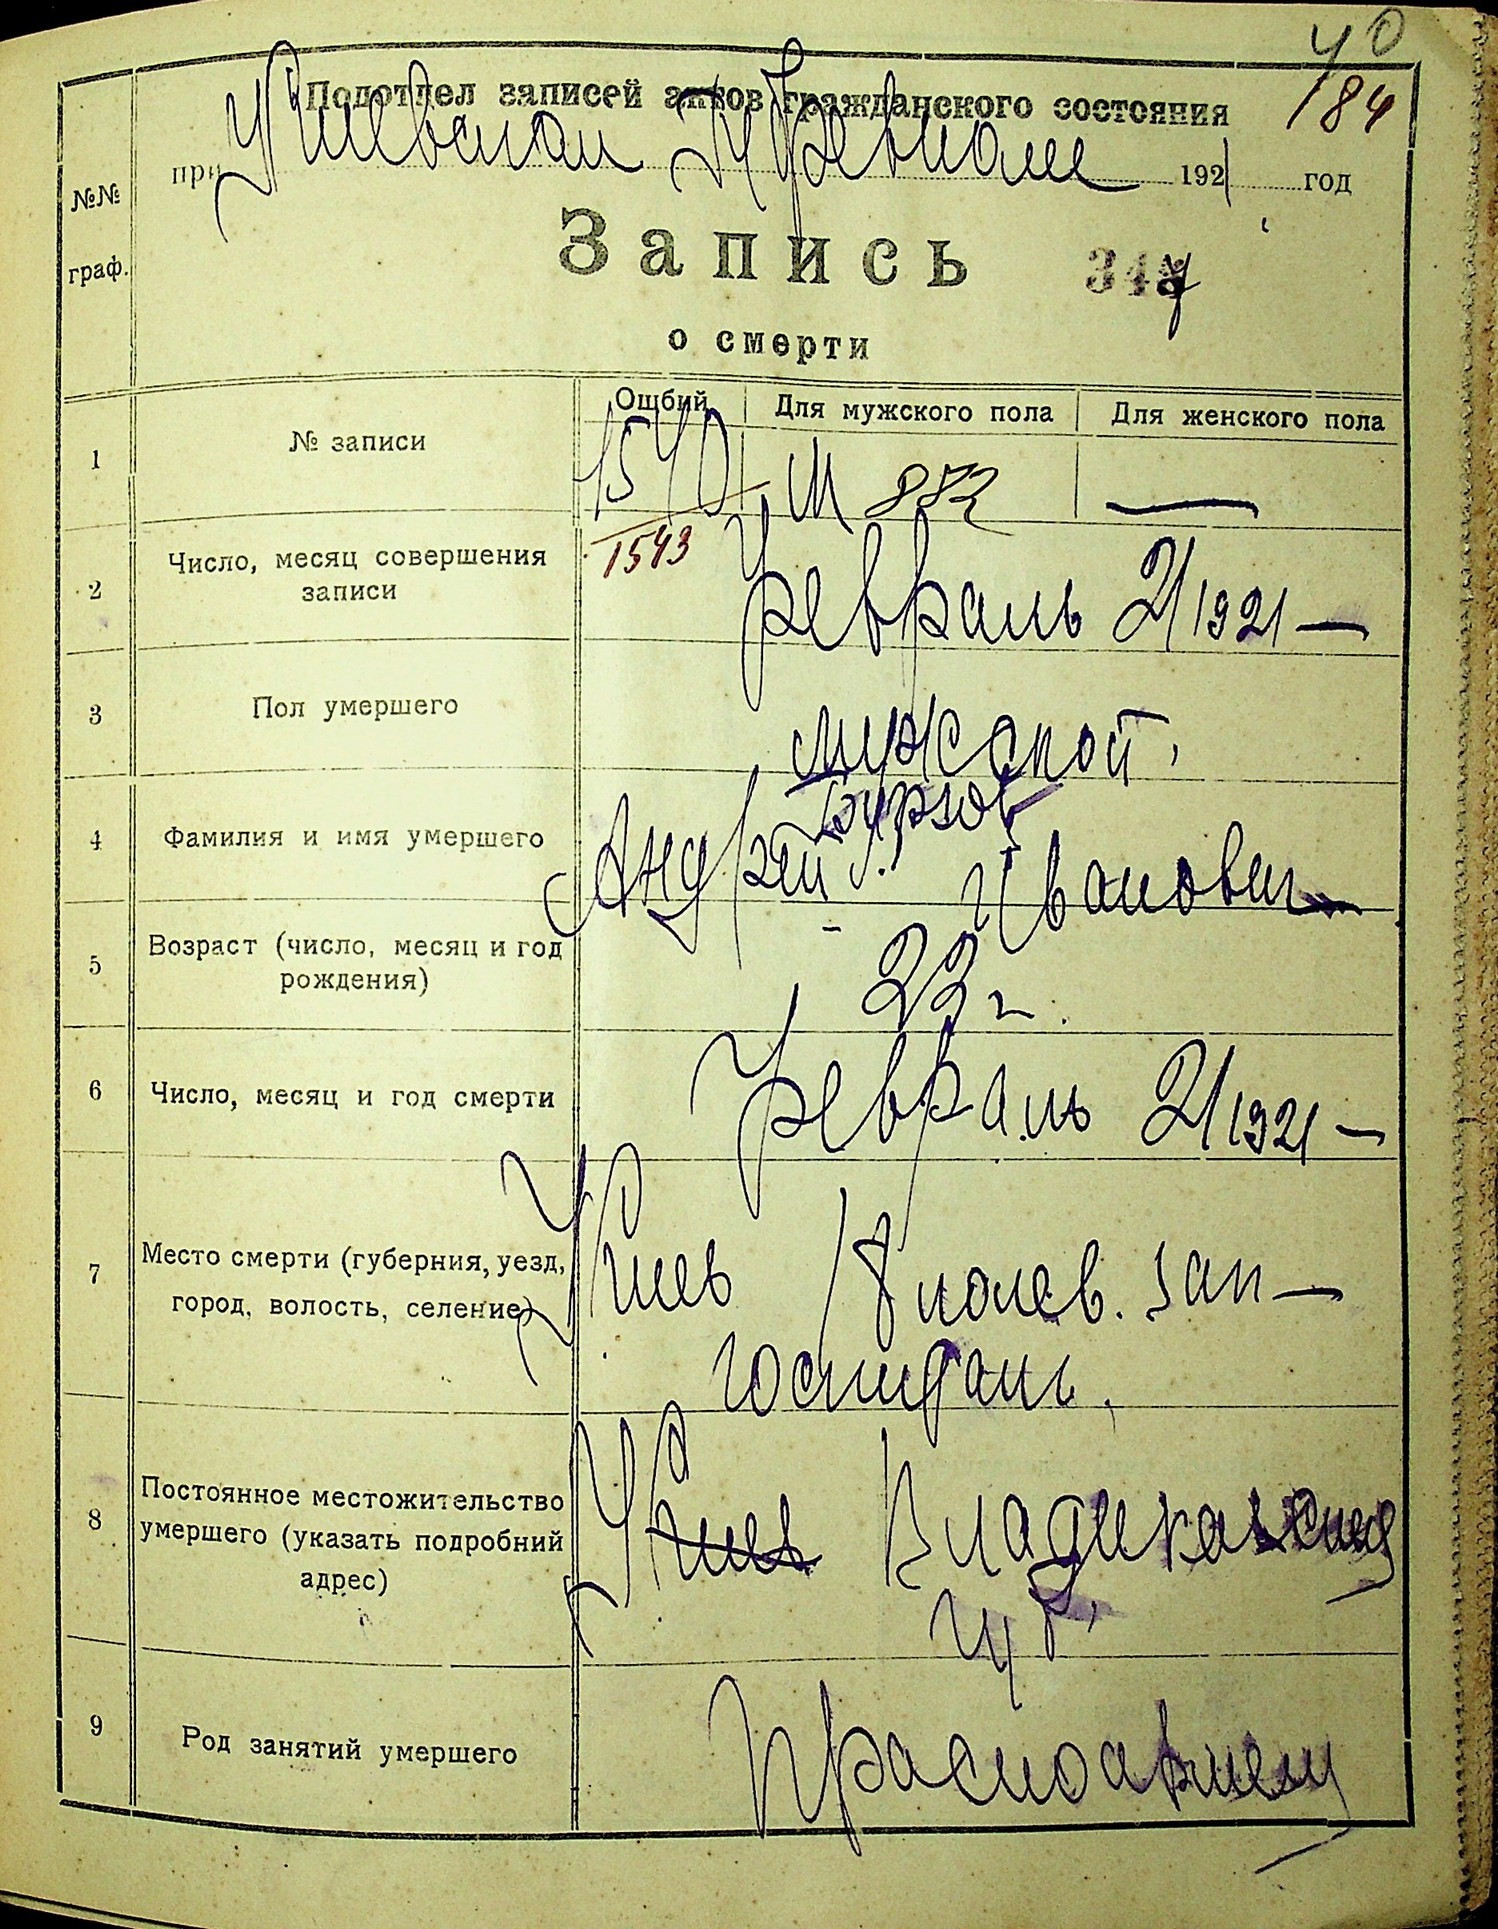 40
184
Подотдел записей актов гражданского состояния
при Киевском Губревкоме 1921 год
№№ граф.
Запись 347
о смерти
Ощбий Для мужского пола Для женского пола
1 № записи 1540 М 882 —
1543
2 Число, месяц совершения записи Февраль 2/1921 —
3 Пол умершего мужской.
Бурзов
4 Фамилия и имя умершего Андрей Иванович
5 Возраст (число, месяц и год рождения) 22 г.
6 Число, месяц и год смерти Февраль 2/1921 —
7 Место смерти (губерния, уезд, город, волость, селение) Киев полев. зап —
госпиталь.
8 Постоянное местожительство умершего (указать подробний адрес) Киев Владикавская
губ.
9 Род занятий умершего Красноармеец